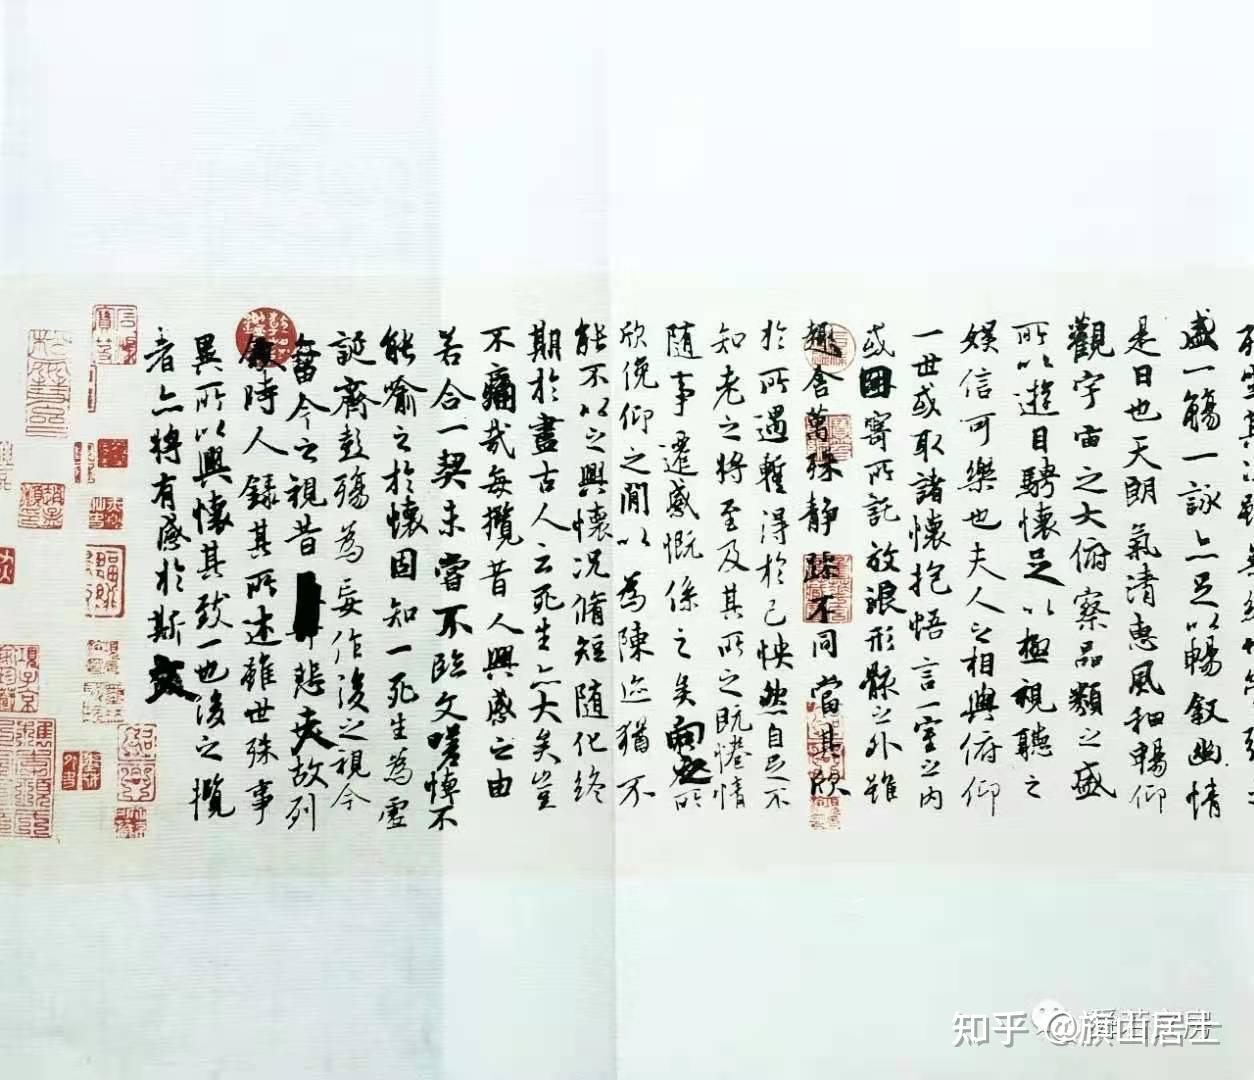 盛一觴一詠亦足以暢叙幽情
是日也天朗氣清惠風和暢仰
觀宇宙之大俯察品類之盛
所以遊目騁懷足以極視聽之
娛信可樂也夫人之相與俯仰
一世或取諸懷抱悟言一室之內
或因寄所託放浪形骸之外雖
趣舍萬殊靜躁不同當其欣
於所遇蹔得於己怏然自足不
知老之將至及其所之既惓情
隨事遷感慨係之矣向之所
欣俛仰之閒以為陳迹猶不
能不以之興懷況脩短隨化終
期於盡古人云死生亦大矣豈
不痛哉每攬昔人興感之由
若合一契未嘗不臨文嗟悼不
能喻之於懷固知一死生為虛
誕齊彭殤為妄作後之視今
今之視昔悲夫故列
時人錄其所述雖世殊事
異所以興懷其致一也後之攬
者亦將有感於斯文
知乎 @旗山居士